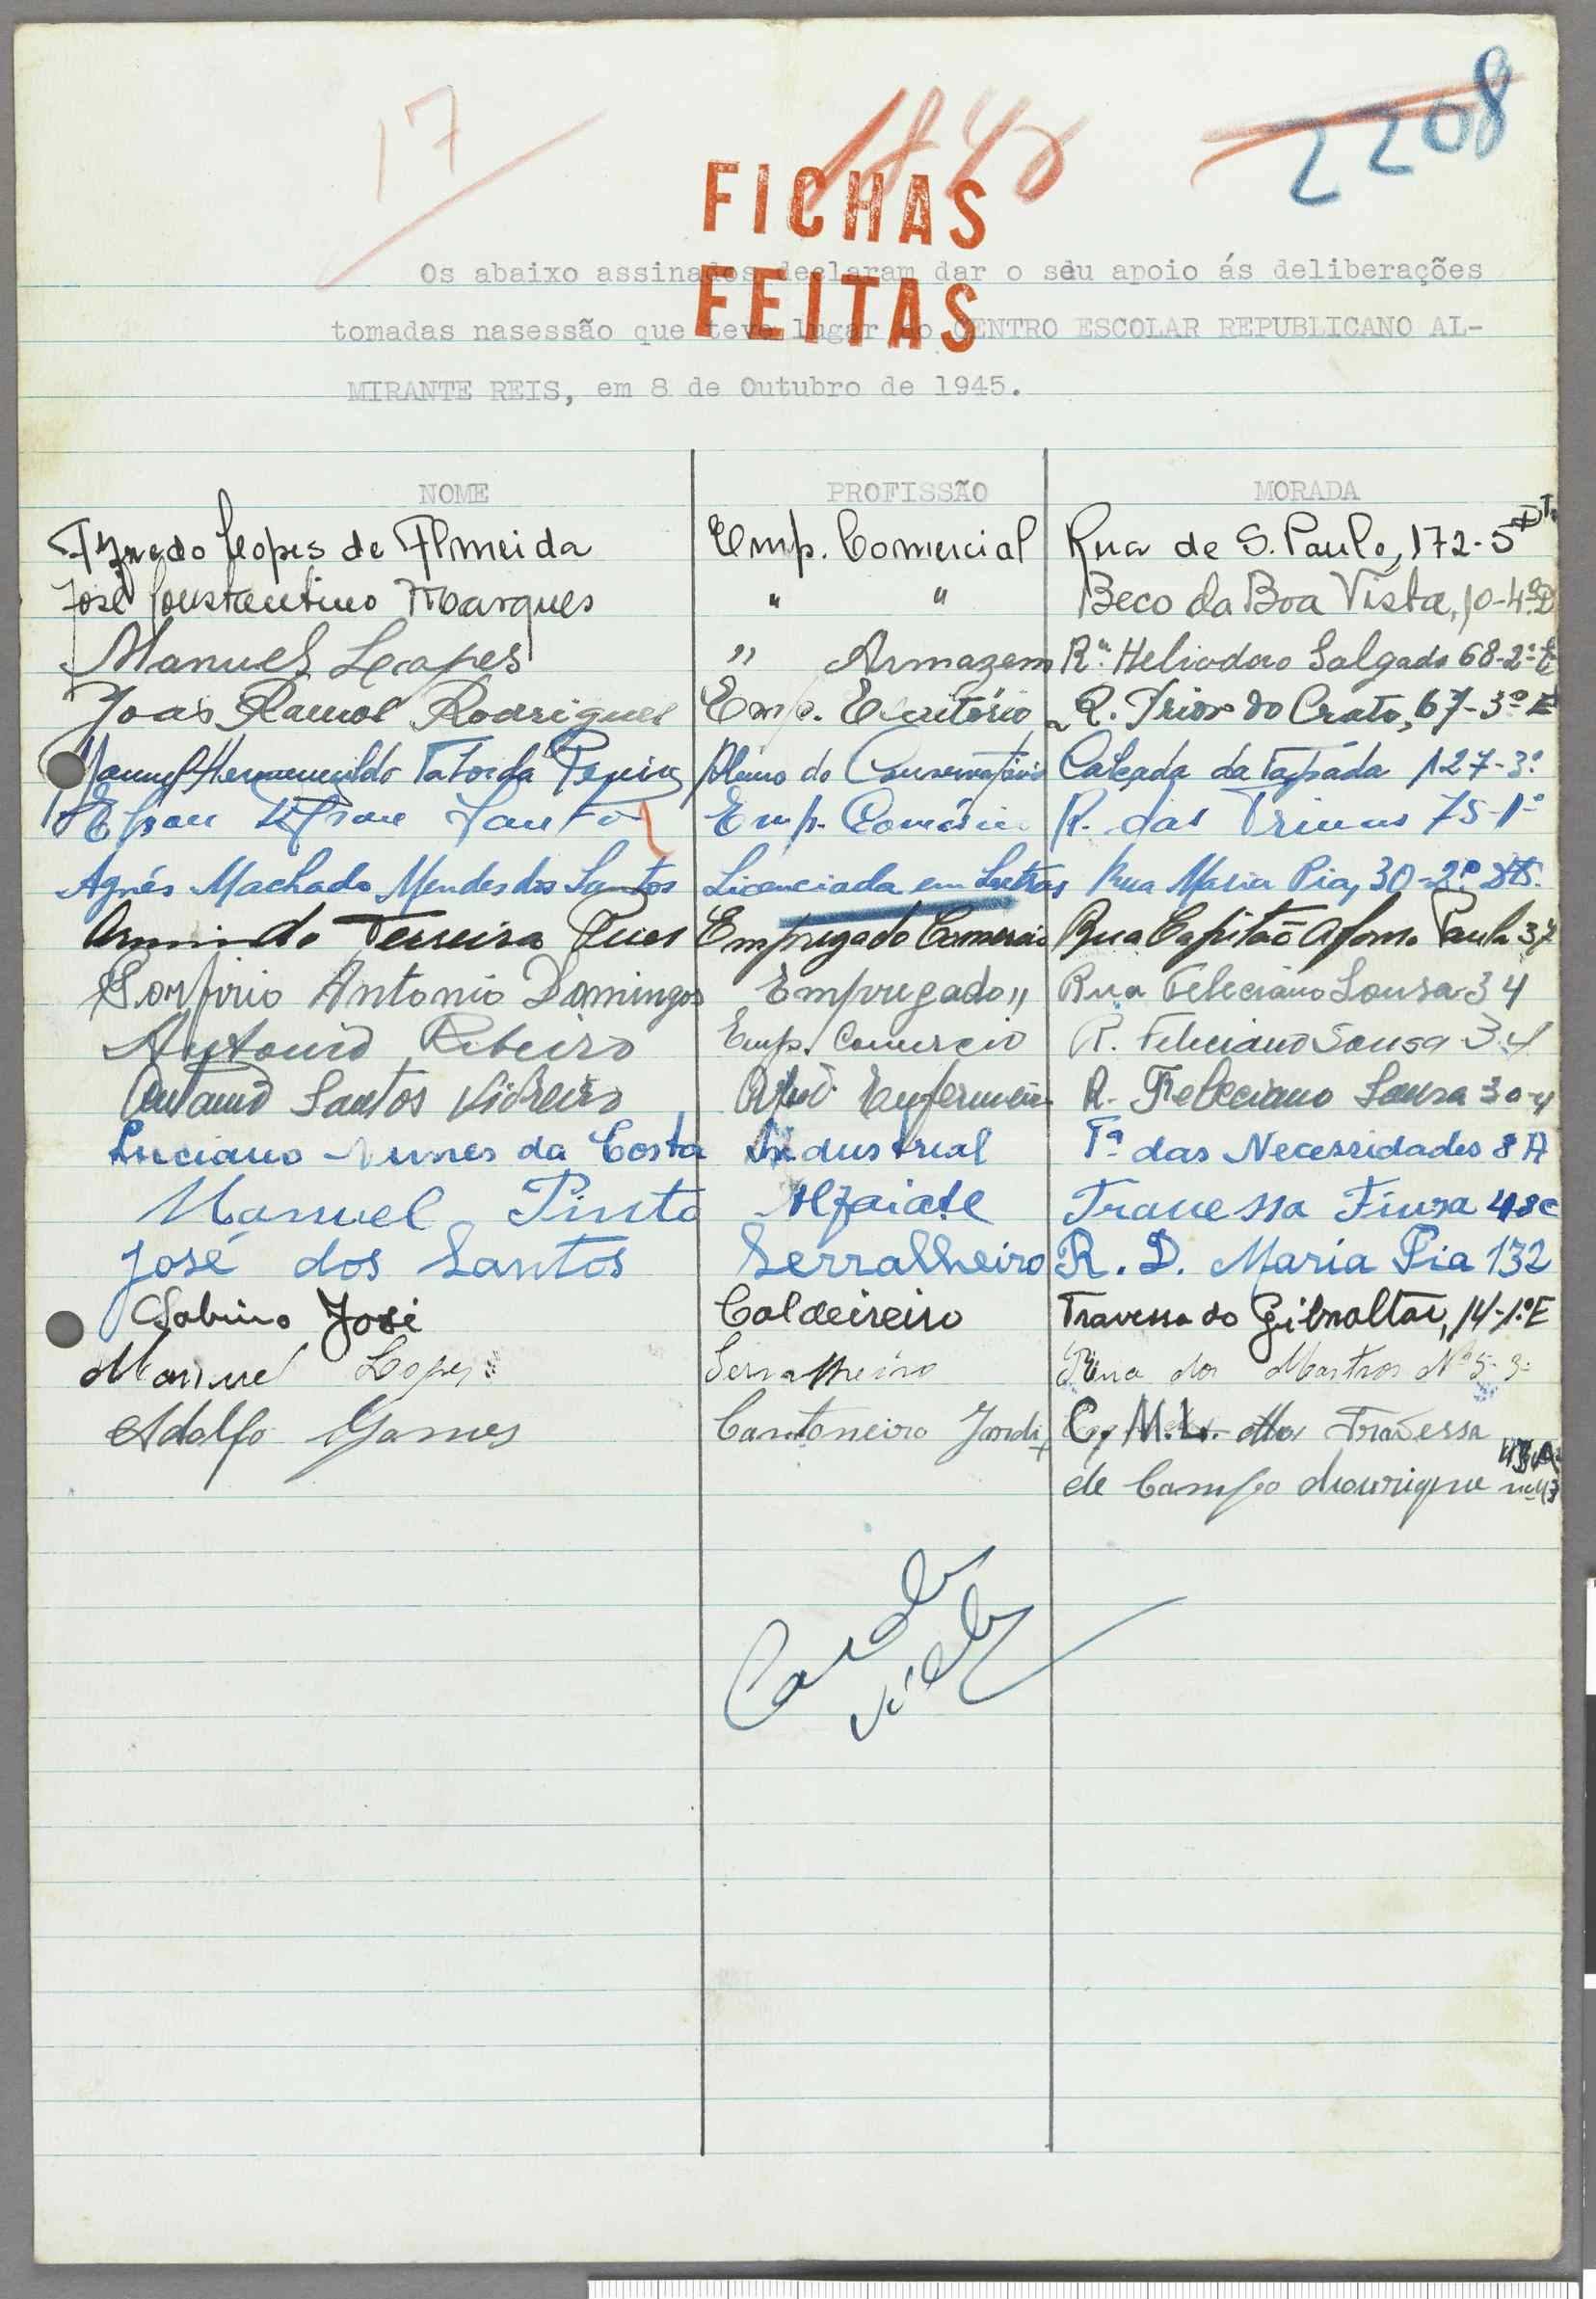 17
2208
FICHAS
FEITAS
Os abaixo assinados declaram dar o seu apoio ás deliberações
tomadas nasessão que teve lugar no CENTRO ESCOLAR REPUBLICANO AL-
MIRANTE REIS, em 8 de Outubro de 1945.
NOME PROFISSÃO MORADA
Alfredo Lopes de Almeida Emp. Comercial Rua de S. Paulo, 172-5º Dt.
José Constantino Marques " " Beco da Boa Vista, 10-4º D
Manuel Lopes " Armazem Rª Heliodoro Salgado 68-2º-E
João Ramos Rodrigues Emp. Escritório R. Prior do Crato, 67-3º E
Manuel Hermenegildo Aluno do Conservatório Calçada da Tapada 127-3º
Santos Emp. Comércio R. das Trinas 75-1º
Agnés Machado Mendes dos Santos Licenciada em Letras Rua Maria Pia, 30-2º Dtº.
Armindo Ferreira Empregado Comercio Rua Capitão Afonso Paula 37
Porfirio Antonio Domingos Empregado " Rua Feleciano Sousa 34
Antonio Ribeiro Emp. Comercio R. Feliciano Sousa 34
Antonio Santos Vidreiro Enfermeiro R. Feleciano Sousa 30-4
Luciano Nunes da Costa Industrial Tª das Necessidades 8 A
Manuel Pinto Alfaiate Travessa Fiuza 48c
José dos Santos Serralheiro R. D. Maria Pia 132
Sabino José Caldeireiro Travessa do Gibraltar, 14-1º E
Manuel Lopes Serralheiro Rua dos Mastros Nº 5-3º
Adolfo Gomes Cantoneiro Jardi C. M. L. Travessa
de Campo dourique nº 43